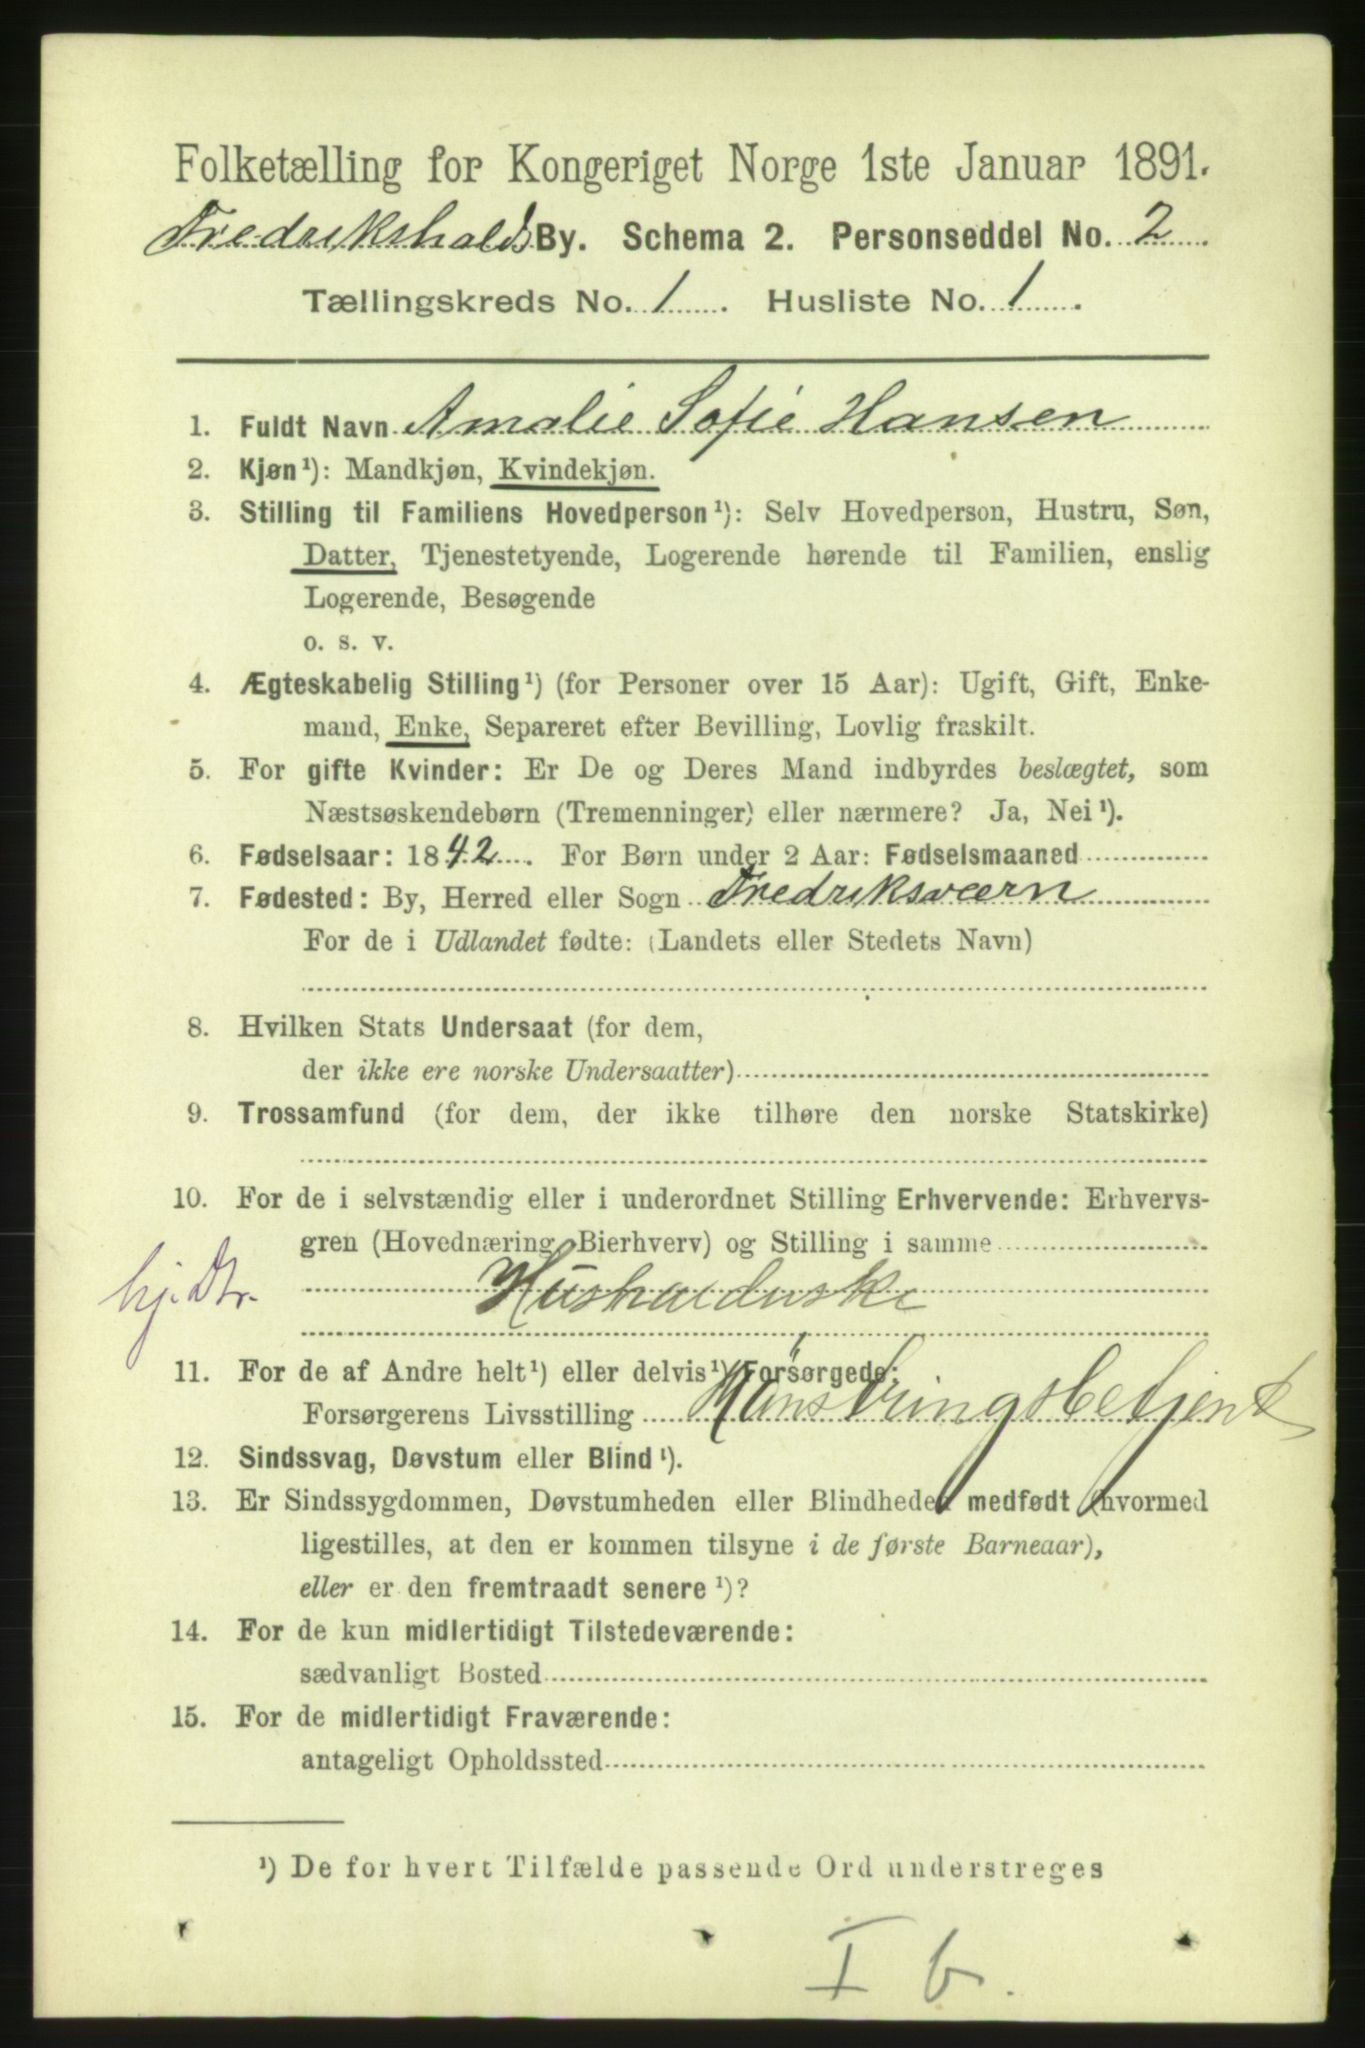 Folketælling for Kongeriget Norge 1ste Januar 1891.
Fredrikshalds By. Schema 2. Personseddel No. 2
Tællingskreds No. 1. Husliste No. 1.
1. Fuldt Navn Amalie Sofie Hansen
2. Kjøn¹): Mandkjøn, Kvindekjøn.
3. Stilling til Familiens Hovedperson¹): Selv Hovedperson, Hustru, Søn,
Datter, Tjenestetyende, Logerende hørende til Familien, enslig
Logerende, Besøgende
o. s. v.
4. Ægteskabelig Stilling¹) (for Personer over 15 Aar): Ugift, Gift, Enke-
mand, Enke, Separeret efter Bevilling, Lovlig fraskilt.
5. For gifte Kvinder: Er De og Deres Mand indbyrdes beslægtet, som
Næstsøskendebørn (Tremenninger) eller nærmere? Ja, Nei¹).
6. Fødselsaar: 1842. For Børn under 2 Aar: Fødselsmaaned
7. Fødested: By, Herred eller Sogn Fredriksværn
For de i Udlandet fødte: (Landets eller Stedets Navn)
8. Hvilken Stats Undersaat (for dem,
der ikke ere norske Undersaatter)
9. Trossamfund (for dem, der ikke tilhøre den norske Statskirke)
10. For de i selvstændig eller i underordnet Stilling Erhvervende: Erhvervs-
gren (Hovednæring, Bierhverv) og Stilling i samme
hj. Dtr. Husholderske
11. For de af Andre helt¹) eller delvis¹) Forsørgede:
Forsørgerens Livsstilling Mønstringsbetjent
12. Sindssvag, Døvstum eller Blind¹).
13. Er Sindssygdommen, Døvstumheden eller Blindheden medfødt (hvormed
ligestilles, at den er kommen tilsyne i de første Barneaar),
eller er den fremtraadt senere¹)?
14. For de kun midlertidigt Tilstedeværende:
sædvanligt Bosted
15. For de midlertidigt Fraværende:
antageligt Opholdssted
¹) De for hvert Tilfælde passende Ord understreges
I b.